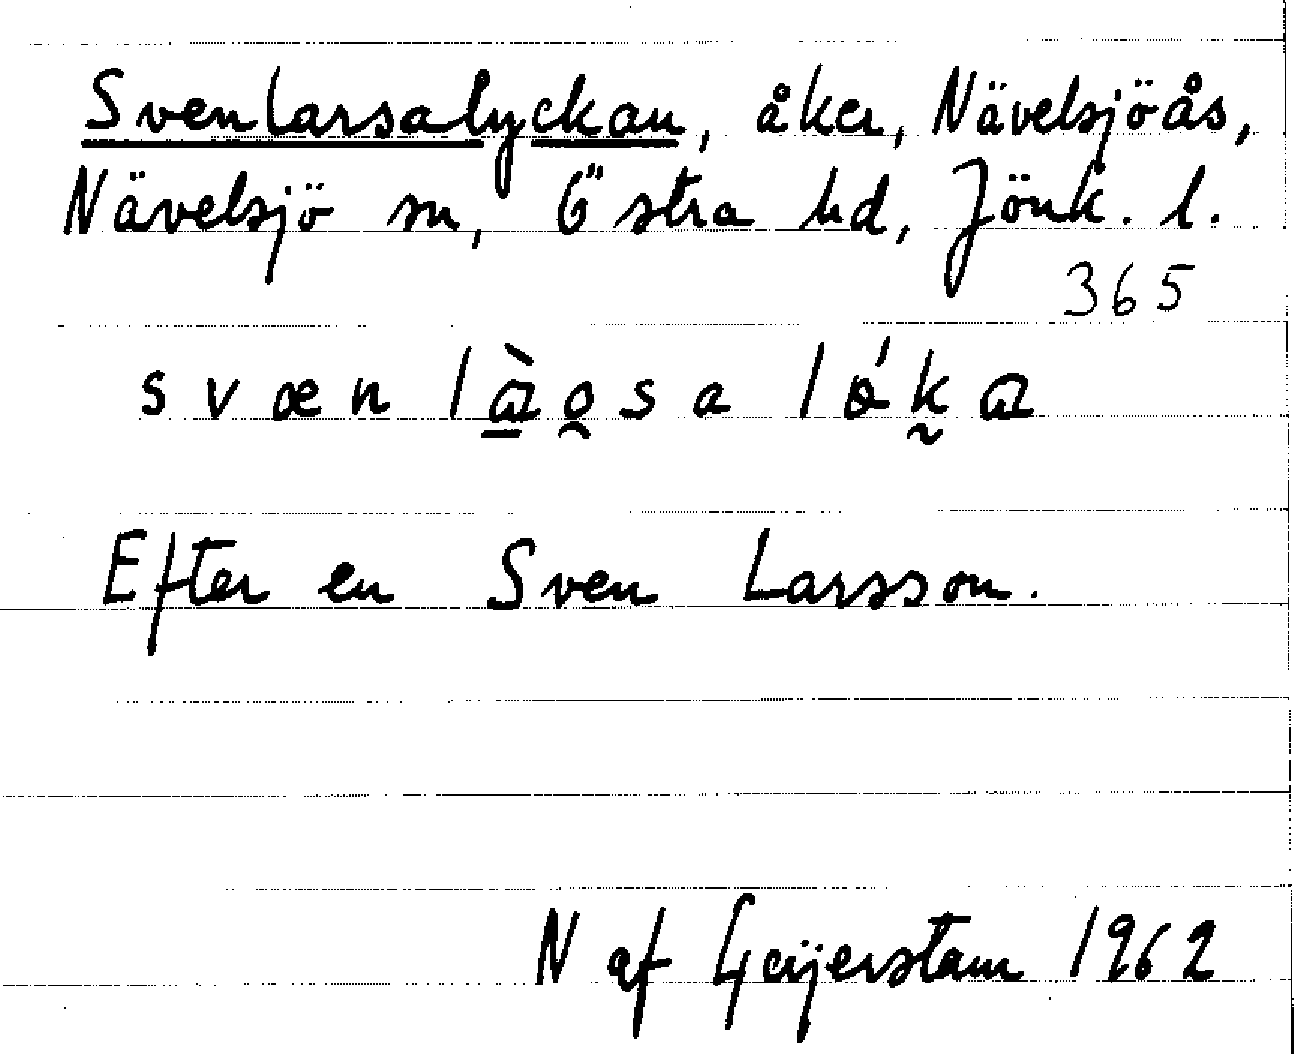 Svenlarsalyckan, åker, Nävelsjöås,
Nävelsjö sn, Östra hd, Jönk. l.
365
Efter en Sven Larsson.
N af Geijerstam 1962